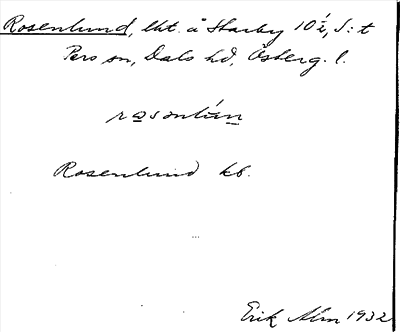 Rosenlund, lht. å Starby 10½, S:t
Pers sn, Dals hd, Österg. l.
rosɷnlún
Rosenlund kb.
Erik Alm 1932